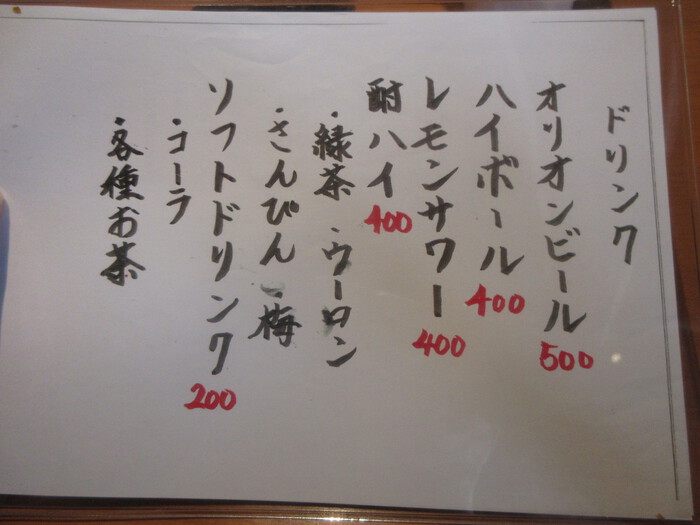 ドリンク
オリオンビール 500
ハイボール 400
レモンサワー 400
酎ハイ 400
・緑茶 ・ウーロン
・さんぴん ・梅
ソフトドリンク 200
・コーラ
・各種お茶